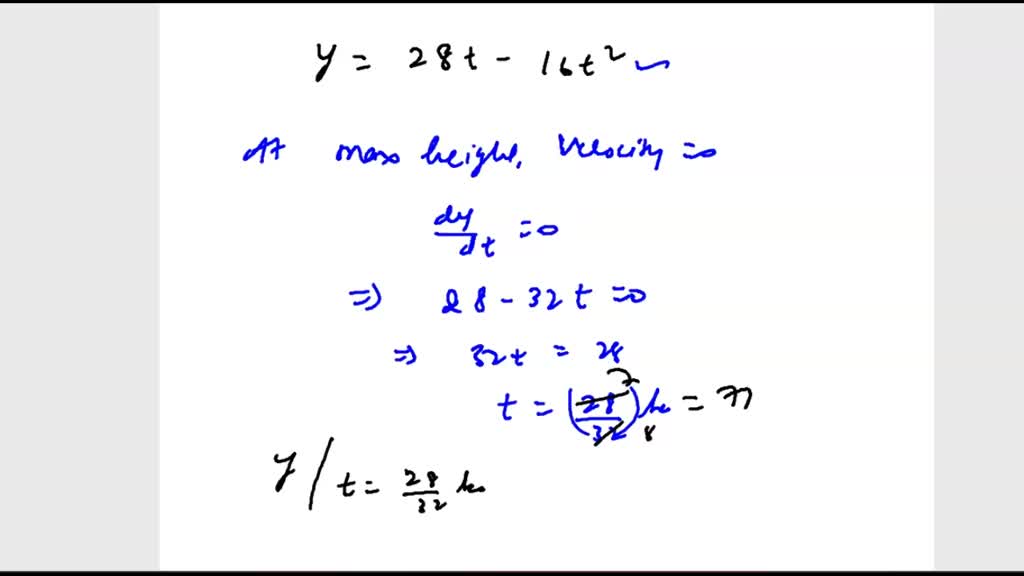 y = 28t - 16t²
At max height, Velocity = 0
dy/dt = 0
⇒ 28 - 32t = 0
⇒ 32t = 28
t = (28/32) = 7
8
y / t = 28/32